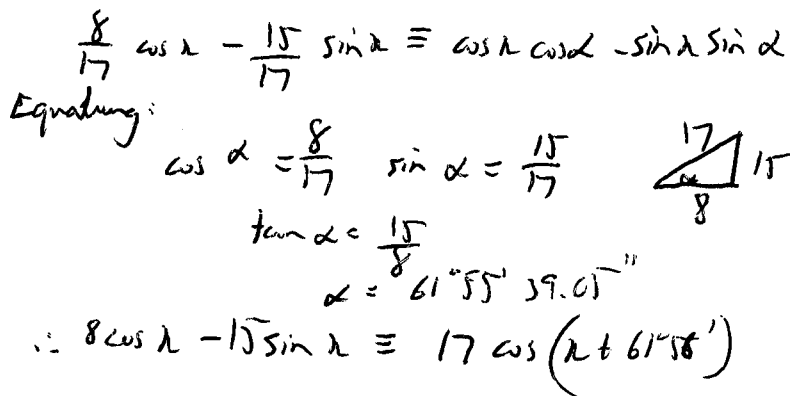 8/17 cos x - 15/17 sin x ≡ cos x cos α - sin x sin α
Equating:
cos α = 8/17 sin α = 15/17
17 15 α 8
tan α = 15/8
α = 61°55' 39.05"
∴ 8 cos x - 15 sin x ≡ 17 cos (x + 61°56')